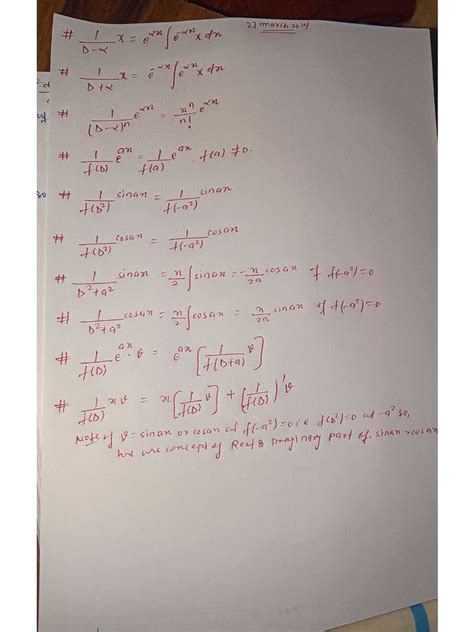 27 march 2024
# 1/(D-α) x = e^{αx} ∫ e^{-αx} x dx
# 1/(D+α) x = e^{-αx} ∫ e^{αx} x dx
# 1/(D-α)^n e^{αx} = x^n/n! e^{αx}
# 1/f(D) e^{ax} = 1/f(a) e^{ax}, f(a) ≠ 0.
# 1/f(D²) sinax = 1/f(-a²) sinax
# 1/f(D²) cosax = 1/f(-a²) cosax
# 1/(D²+a²) sinax = x/2 ∫ sinax = -x/2a cosax if f(-a²)=0
# 1/(D²+a²) cosax = x/2 ∫ cosax = x/2a sinax if f(-a²)=0
# 1/f(D) e^{ax}.v = e^{ax} [1/f(D+a) v]
# 1/f(D) xv = x[1/f(D) v] + [1/f(D)]' v
Note if v = sinax or cosax and f(-a²)=0 i.e f(D²)=0 at -a² so,
we concept of Real & Imaginary part of sinax & cosax